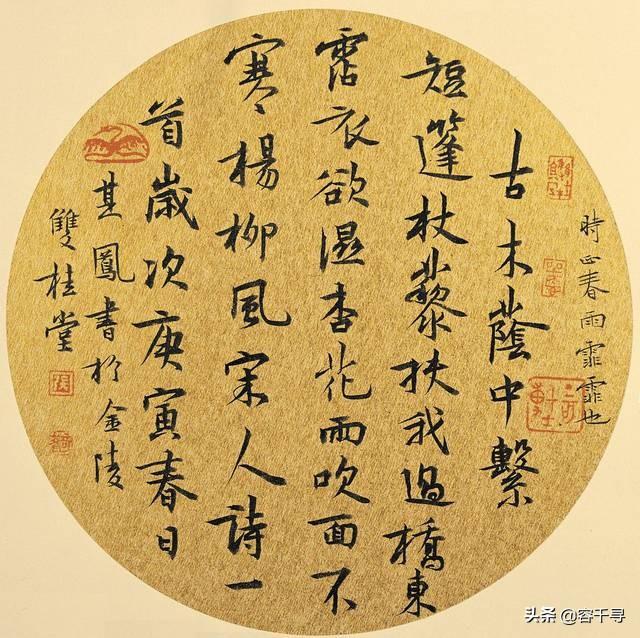 時正春雨霏霏也
古木蔭中繫
短篷杖藜扶我過橋東
霑衣欲濕杏花雨吹面不
寒楊柳風宋人詩一
首歲次庚寅春日
其鳳書於金陵
雙桂堂
头条 @容千寻